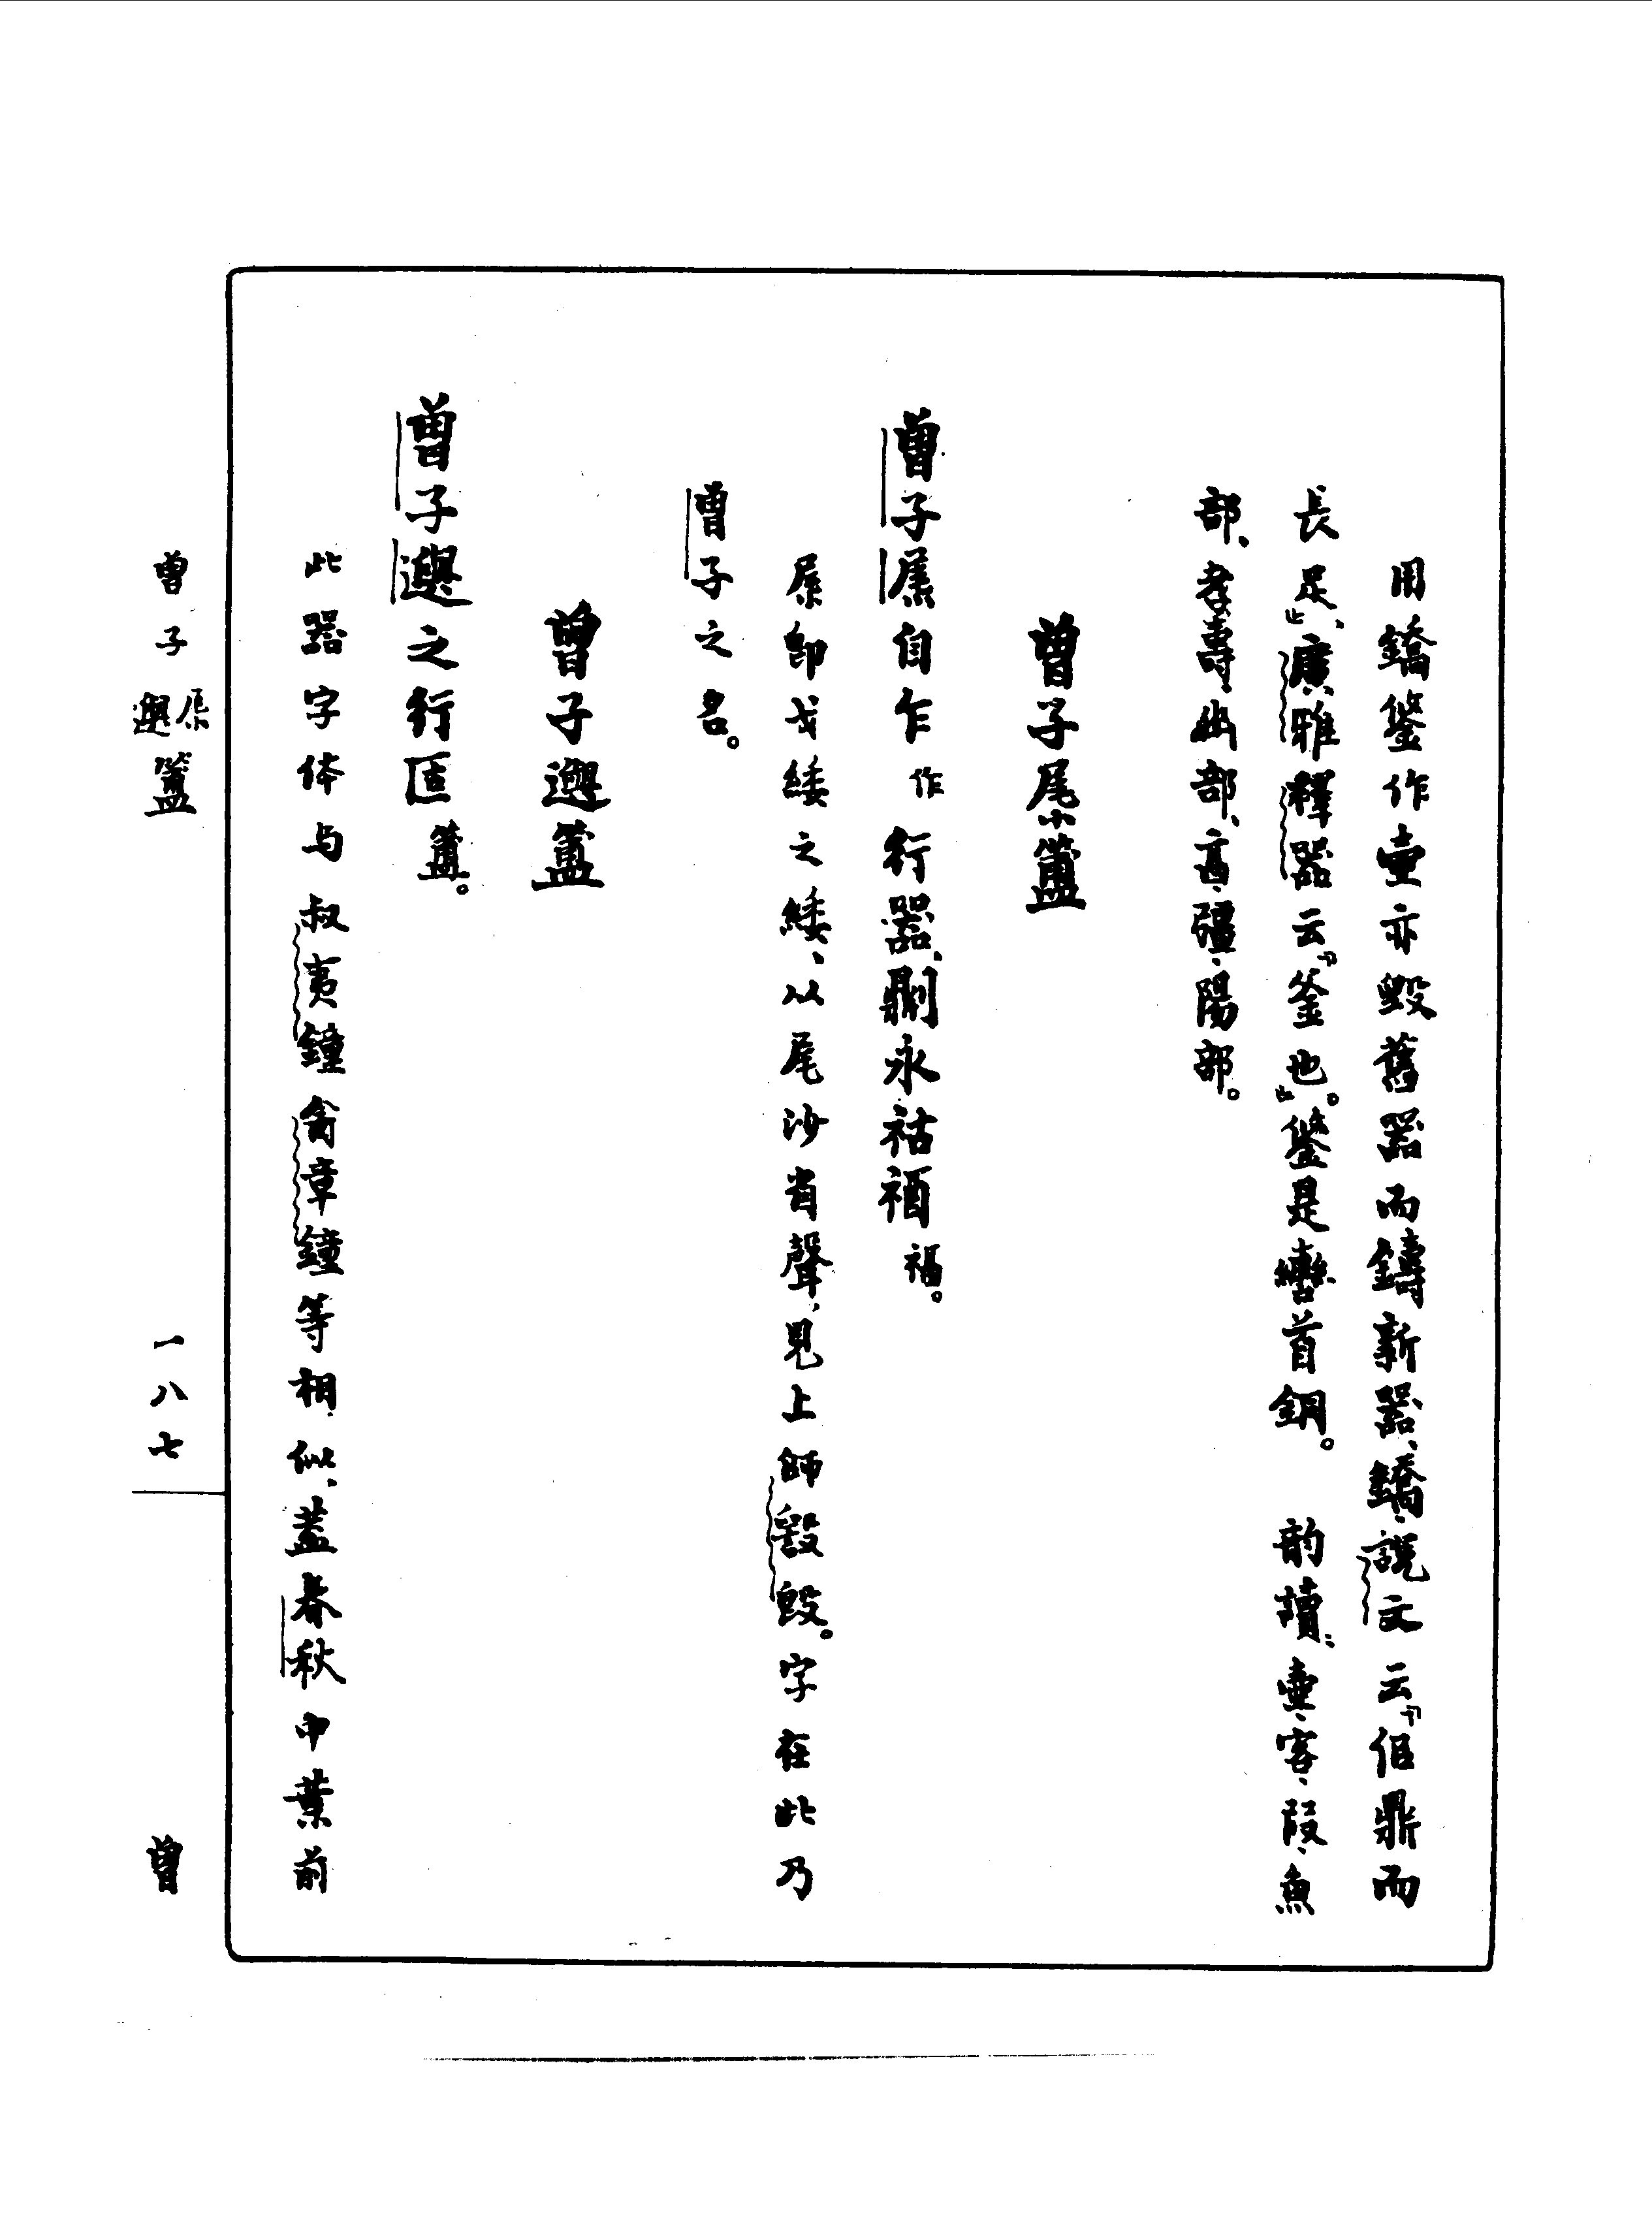 用鐈鋚作壷亦毀舊器而鑄新器、鐈、說文云「侣鼎而
長足」、廣雅釋器云「釜也。」鋚是轡首銅。　韵讀：壷、客、叚、魚
部、孝、壽、幽部、亯、彊、陽部。
曾子㞑簠
曾子㞑自乍作行器、劓永祜福。
㞑即戈緌之緌、从尾沙省聲、見上師𣪕𣪘。字在此乃
曾子之名。
曾子䢵簠
曾子之行匠簠。
此器字体与叔夷鐘、酓章鐘等相似、蓋春秋中葉前
曾子簠
一八七
曾